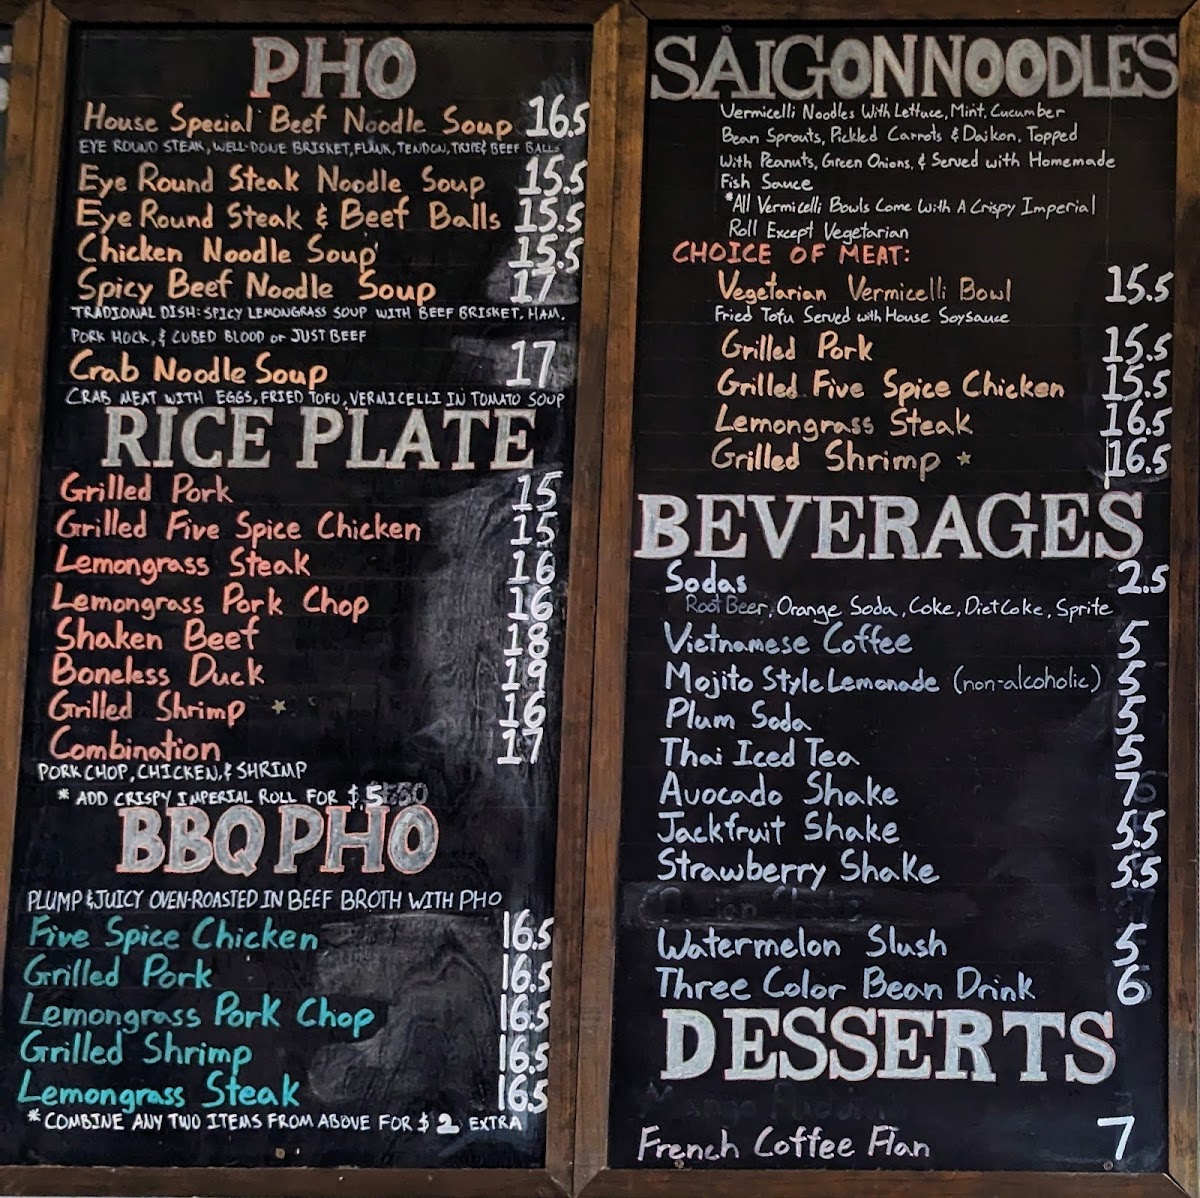 PHO
House Special Beef Noodle Soup 16.5
EYE ROUND STEAK, WELL-DONE BRISKET, FLANK, TENDON, TRIPE & BEEF BALLS
Eye Round Steak Noodle Soup 15.5
Eye Round Steak & Beef Balls 15.5
Chicken Noodle Soup 15.5
Spicy Beef Noodle Soup 17
TRADIONAL DISH: SPICY LEMONGRASS SOUP WITH BEEF BRISKET, HAM,
PORK HOCK, & CUBED BLOOD or JUST BEEF
Crab Noodle Soup 17
CRAB MEAT WITH EGGS, FRIED TOFU, VERMICELLI IN TOMATO SOUP
RICE PLATE
Grilled Pork 15
Grilled Five Spice Chicken 15
Lemongrass Steak 16
Lemongrass Pork Chop 16
Shaken Beef 18
Boneless Duck 19
Grilled Shrimp 16
Combination 17
PORK CHOP, CHICKEN, & SHRIMP
* ADD CRISPY IMPERIAL ROLL FOR $5
BBQ PHO
PLUMP & JUICY OVEN-ROASTED IN BEEF BROTH WITH PHO
Five Spice Chicken 16.5
Grilled Pork 16.5
Lemongrass Pork Chop 16.5
Grilled Shrimp 16.5
Lemongrass Steak 16.5
* COMBINE ANY TWO ITEMS FROM ABOVE FOR $2 EXTRA
SAIGON NOODLES
Vermicelli Noodles With Lettuce, Mint, Cucumber
Bean Sprouts, Pickled Carrots & Daikon, Topped
With Peanuts, Green Onions, & Served with Homemade
Fish Sauce
*All Vermicelli Bowls Come With A Crispy Imperial
Roll Except Vegetarian
CHOICE OF MEAT:
Vegetarian Vermicelli Bowl 15.5
Fried Tofu Served with House Soysauce
Grilled Pork 15.5
Grilled Five Spice Chicken 15.5
Lemongrass Steak 16.5
Grilled Shrimp 16.5
BEVERAGES
Sodas 2.5
Root Beer, Orange Soda, Coke, Diet Coke, Sprite
Vietnamese Coffee 5
Mojito Style Lemonade (non-alcoholic) 5
Plum Soda 5
Thai Iced Tea 5
Avocado Shake 7
Jackfruit Shake 5.5
Strawberry Shake 5.5
Watermelon Slush 5
Three Color Bean Drink 6
DESSERTS
French Coffee Flan 7